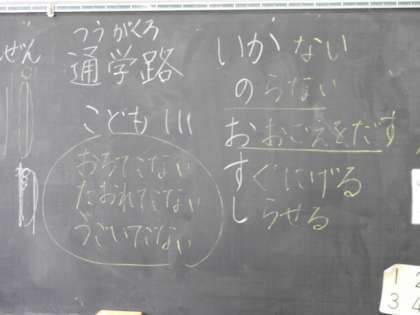 ぜん
つうがくろ
通学路
こども
おちてこない
たおれてこない
うごいてこない
いかない
のらない
おおごえをだす
すぐにげる
しらせる
1 2
3 4